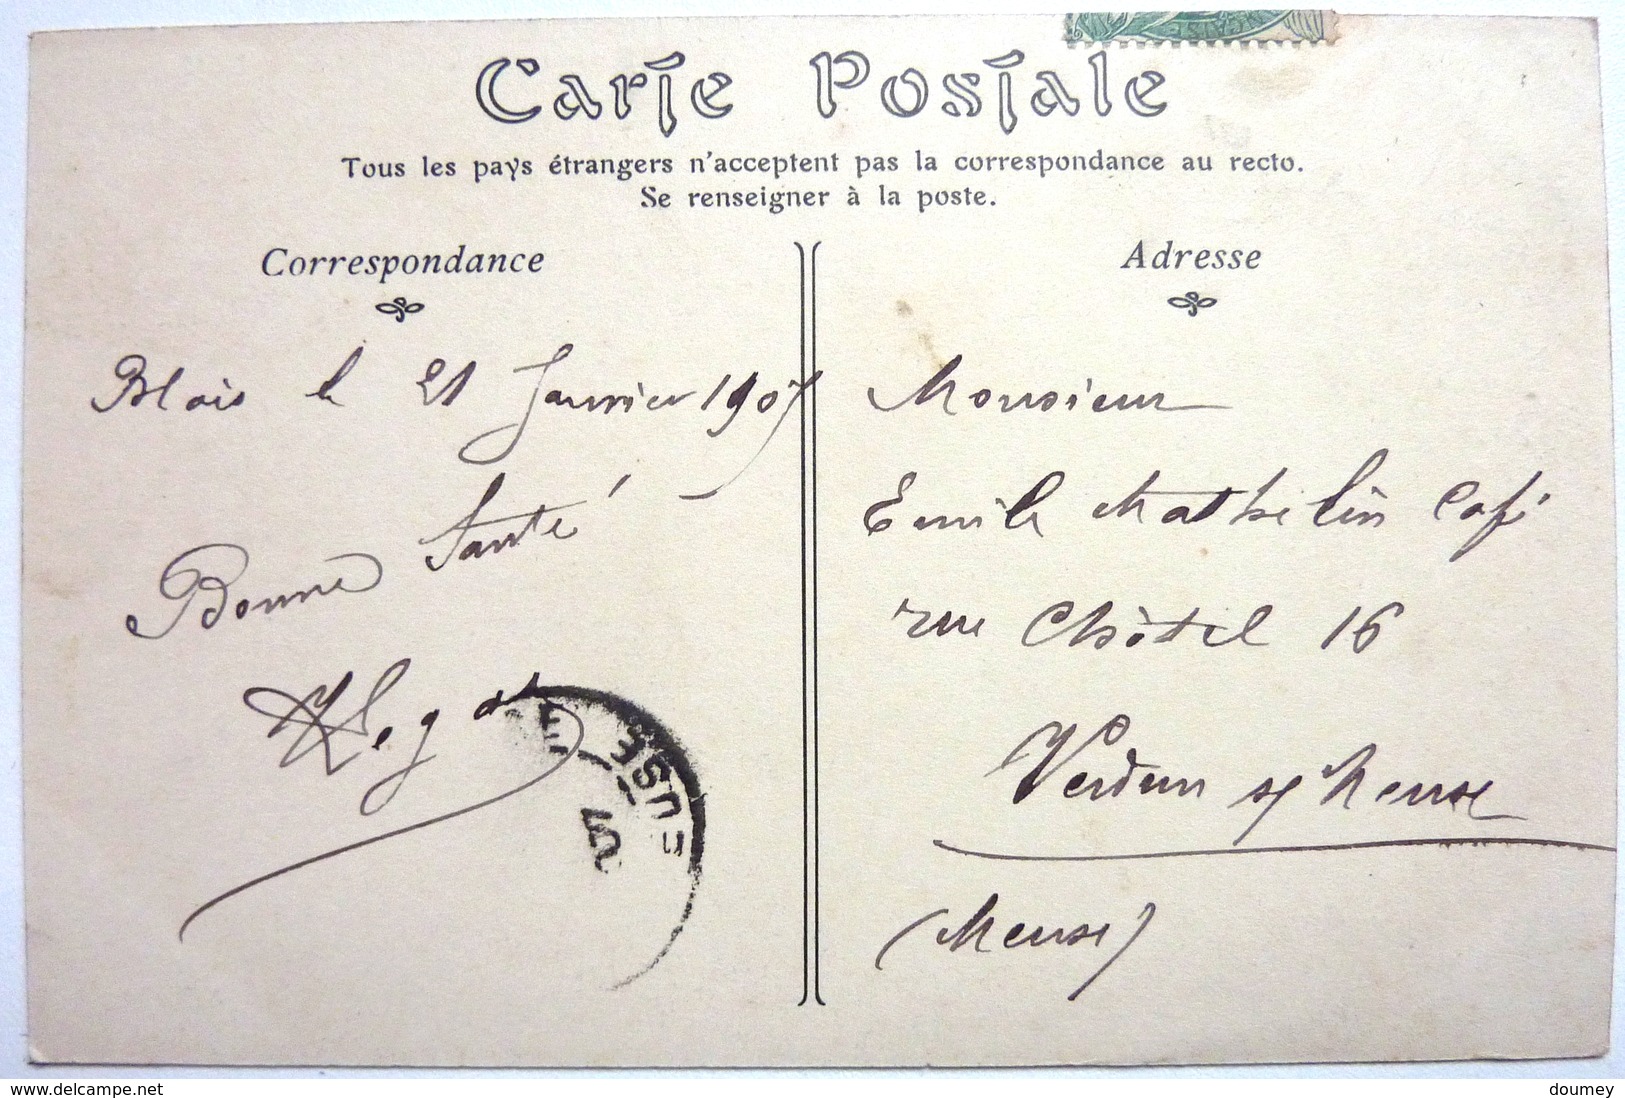 Carte Postale
Tous les pays étrangers n'acceptent pas la correspondance au recto.
Se renseigner à la poste.
Correspondance
Blois le 21 Janvier 1907
Bonne Santé
Adresse
Monsieur
Emile Mathelin Café
rue Châtel 16
Verdun s/ Meuse
(Meuse)
EUSE
07
www.delcampe.net
doumey